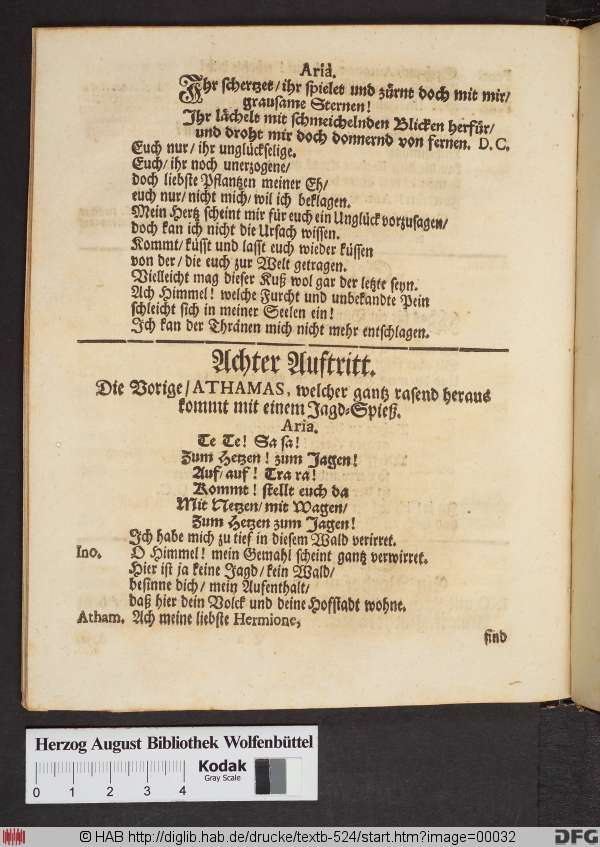 Aria.
Ihr schertzet/ ihr spielet und zürnt doch mit mir/
grausame Sternen!
Ihr lächelt mit schmeichelnden Blicken herfür/
und droht mir doch donnernd von fernen. D. C.
Euch nur/ ihr unglückselige.
Euch/ ihr noch unerzogene/
doch liebste Pflantzen meiner Eh/
euch nur/ nicht mich/ wil ich beklagen.
Mein Hertz scheint mir für euch ein Unglück vorzusagen/
doch kan ich nicht die Ursach wissen.
Kommt/ küsst und lasst euch wieder küssen
von der/ die euch zur Welt getragen.
Vielleicht mag dieser Kuß wol gar der letzte seyn.
Ach Himmel! welche Furcht und unbekandte Pein
schleicht sich in meiner Seelen ein!
Ich kan der Thränen mich nicht mehr entschlagen.
Achter Auftritt.
Die Vorige/ ATHAMAS, welcher gantz rasend heraus
kommt mit einem Jagd-Spieß.
Aria.
Te Te! Sa sa!
Zum Hetzen! zum Jagen!
Auf/ auf! Tra ra!
Kommt! stellt euch da
Mit Netzen/ mit Wagen/
Zum Hetzen zum Jagen!
Ich habe mich zu tief in diesem Wald verirret.
Ino. O Himmel! mein Gemahl scheint gantz verwirret.
Hier ist ja keine Jagd/ kein Wald/
besinne dich/ mein Aufenthalt/
daß hier dein Volck und deine Hofstadt wohne.
Atham. Ach meine liebste Hermione,
sind
Herzog August Bibliothek Wolfenbüttel
Kodak
Gray Scale
0 1 2 3 4
© HAB http://diglib.hab.de/drucke/textb-524/start.htm?image=00032
DFG